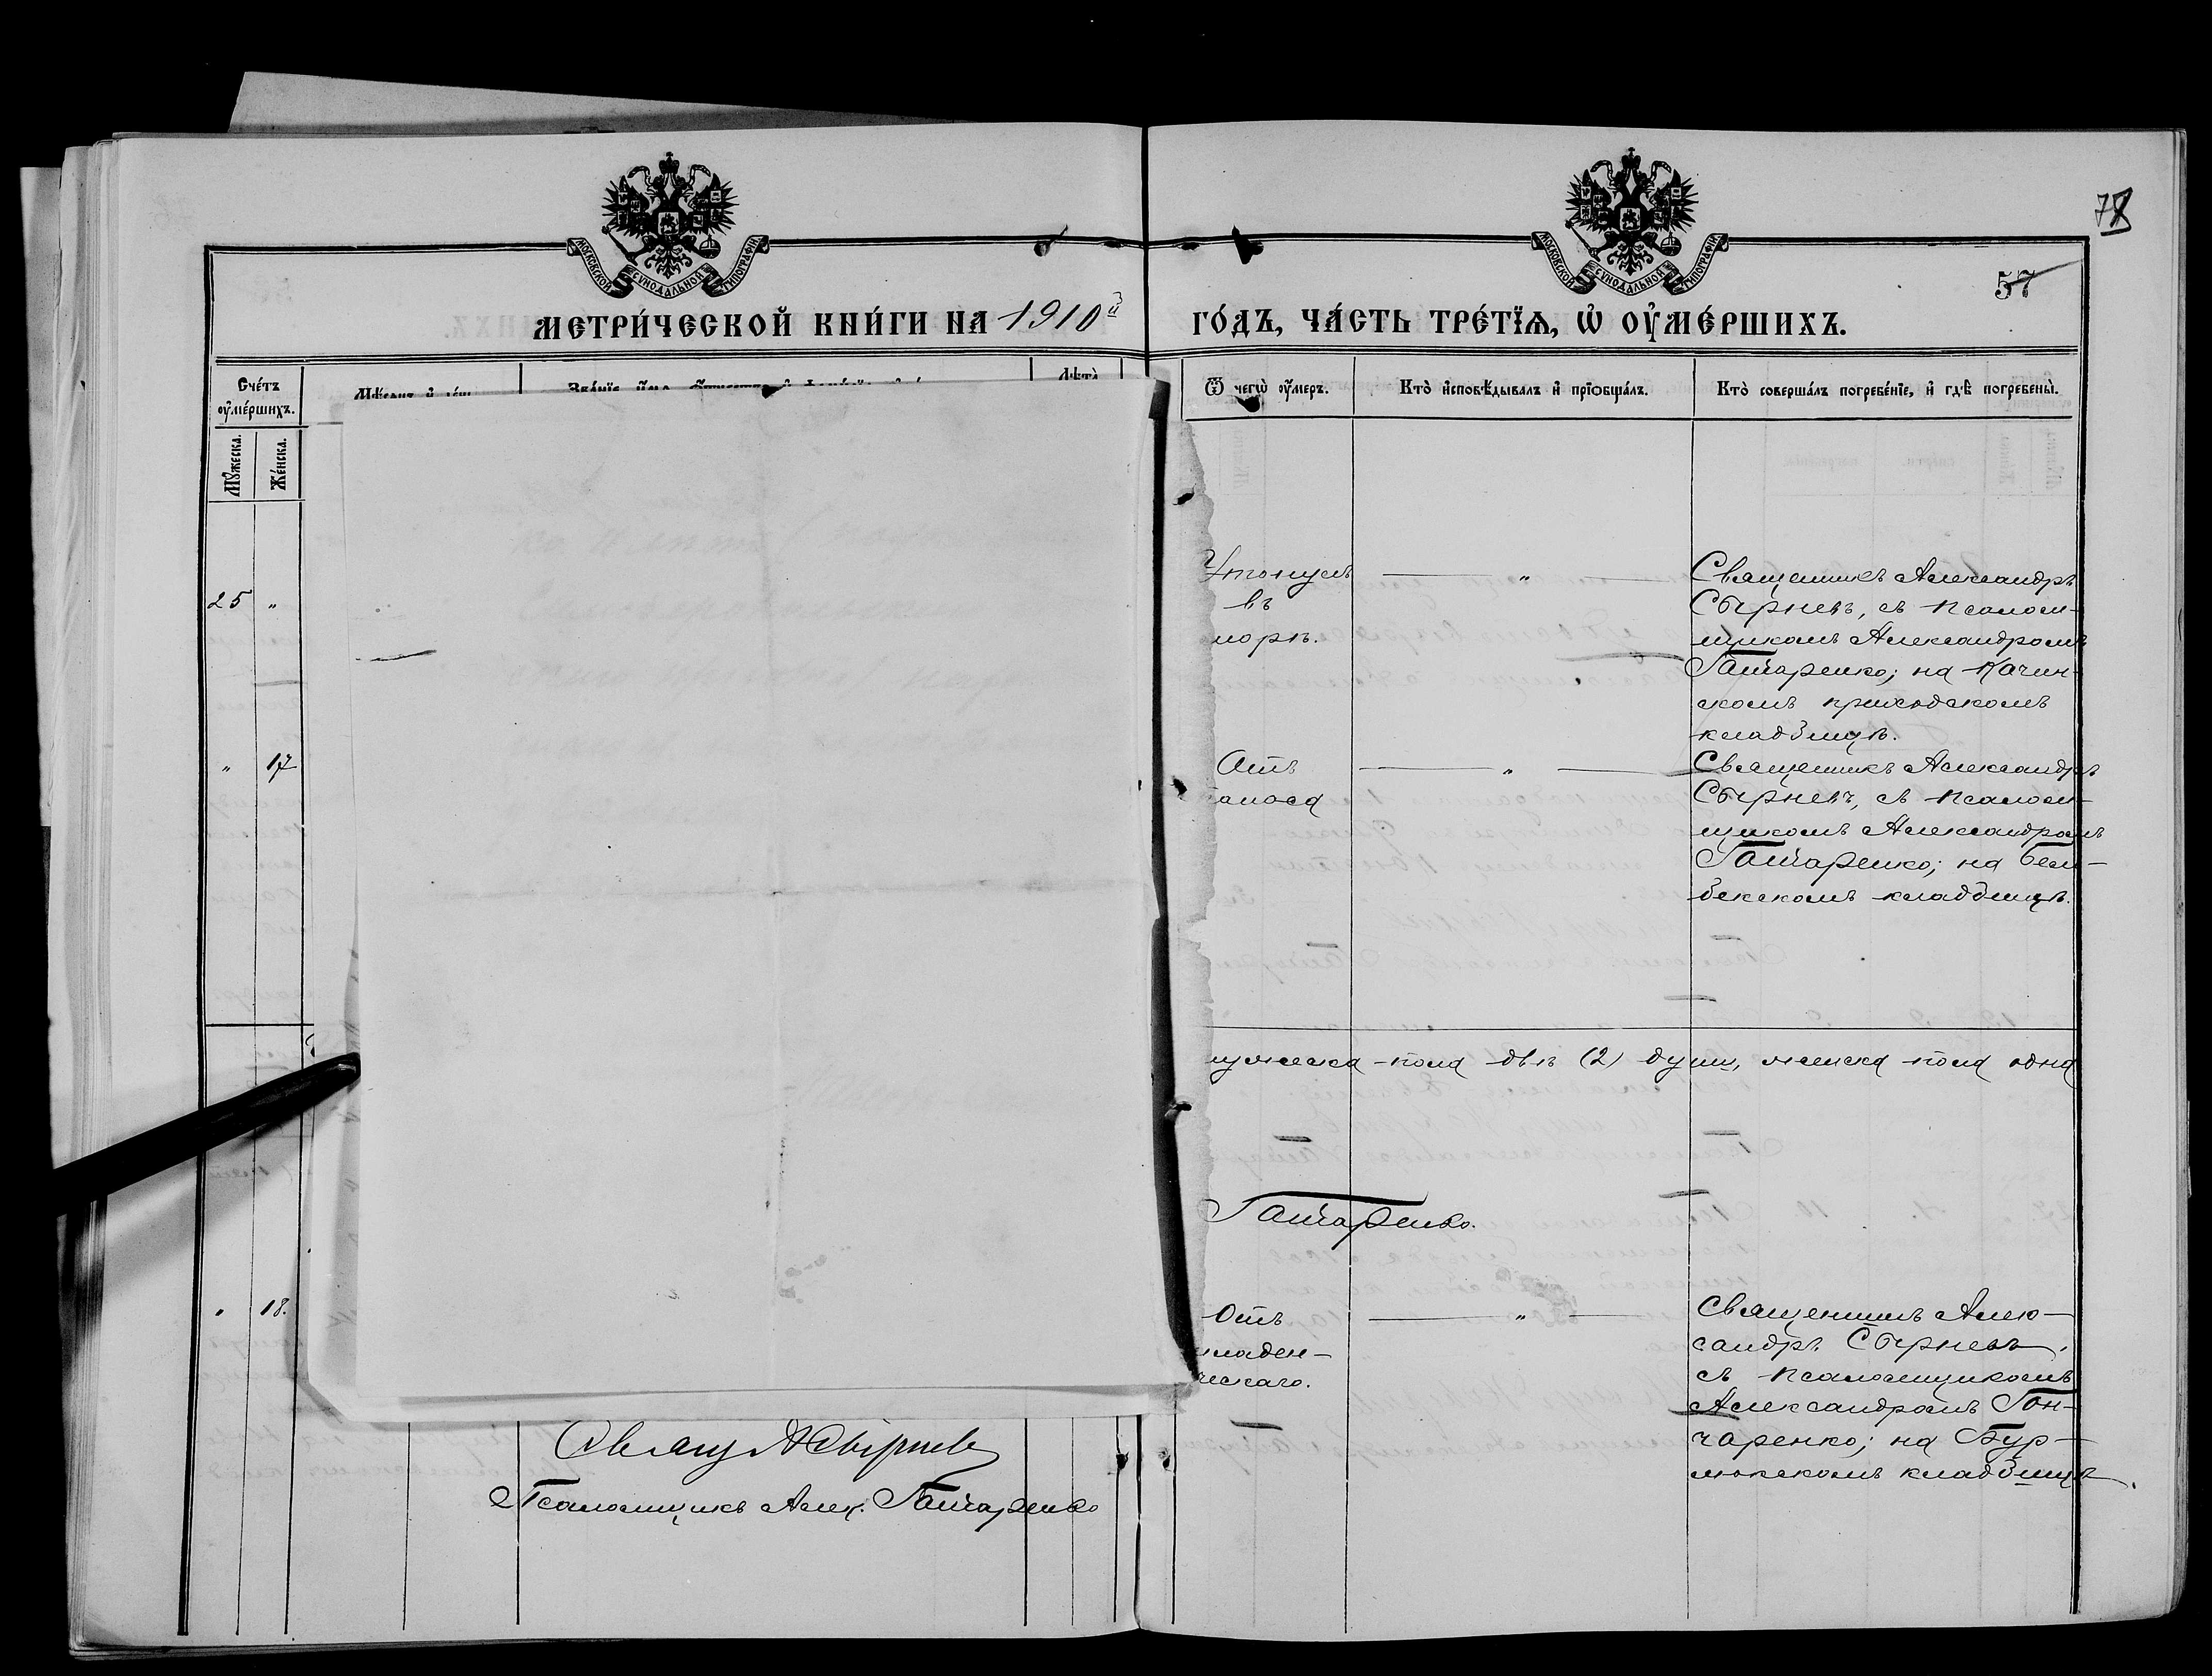 78
57
МОСКОВСКОЙ СУНОДАЛЬНОЙ ТИПОГРАФІИ
МОСКОВСКОЙ СУНОДАЛЬНОЙ ТИПОГРАФІИ
МЕТРИ́ЧЕСКОЙ КНИ́ГИ НА 1910й
ГО́ДЪ, ЧА́СТЬ ТРЕ́ТЇѦ, Ѡ҆ ОУ҆МЕ́РШИХЪ.
Счетъ
оу҆ме́ршихъ.
Мꙋжеска.
Же́нска.
Ѿ чегѡ̀ оу҆́меръ.
Кто̀ и҆сповѣ́дывалъ и҆ прїѡбща́лъ.
Кто̀ соверша́лъ погребе́нїе, и҆ гдѣ̀ погребены̀.
25 "
Утонулъ
въ
морѣ.
"
Священникъ Александръ
Сырневъ, съ псалом-
щикомъ Александромъ
Гончаренко; на Качин-
скомъ приходскомъ
кладбищѣ.
" 17
Отъ
поноса
"
Священникъ Александръ
Сырневъ, съ псалом-
щикомъ Александромъ
Гончаренко; на Бель-
бекскомъ кладбищѣ.
мужеска пола двѣ (2) души, женска пола одна
Гончаренко.
" 18.
Отъ
младен-
ческаго.
"
Священникъ Алек-
сандръ Сырневъ,
съ псаломщикомъ
Александромъ Гон-
чаренко; на Бур-
люкскомъ кладбищѣ.
Свящ А Сырневъ
Псаломщикъ Алек. Гончаренко